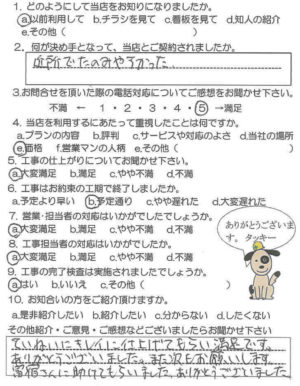 1. どのようにして当店をお知りになりましたか。
a.以前利用して b.チラシを見て c.看板を見て d.知人の紹介
e.その他(　　　)
2. 何が決め手となって、当店とご契約されましたか。
近所でたのみやすかった
3.お問合せを頂いた際の電話対応についてご感想をお聞かせ下さい。
不満 ← 1・2・3・4・5 →満足
4. 当店を利用するにあたって重視したことは何ですか。
a.プランの内容 b.評判 c.サービスや対応のよさ d.当社の場所
e.価格 f.営業マンの人柄 e.その他(　　　)
5. 工事の仕上がりについてお聞かせ下さい。
a.大変満足 b.満足 c.やや不満 d.不満
6. 工事はお約束の工期で終了しましたか。
a.予定より早い b.予定通り c.やや遅れた d.大変遅れた
7. 営業・担当者の対応はいかがでしたでしょうか。
a.大変満足 b.満足 c.やや不満 d.不満
8. 工事担当者の対応はいかがでしたか。
a.大変満足 b.満足 c.やや不満 d.不満
9. 工事の完了検査は実施されましたでしょうか。
a.はい b.いいえ c.その他(　　　)
ありがとうございま
す。タッキー
10. お知り合いの方をご紹介頂けますか。
a.是非紹介したい b.紹介したい c.分からない d.したくない
その他紹介・ご意見・ご感想などございましたらお聞かせ下さい
ていねいにキレイに仕上げてもらい満足です。
ありがとうございました。また次もお願いします。
さんに助けてもらいました。ありがとうございました